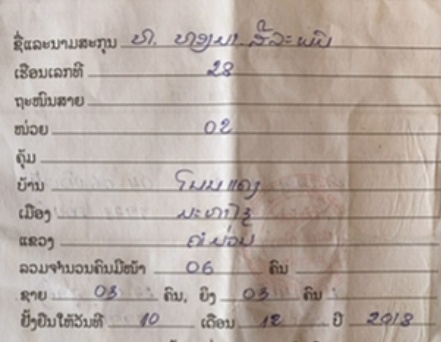 ຊື່ແລະນາມສະກຸນ ທ.
ເຮືອນເລກທີ 28
ຖະໜົນສາຍ
ໜ່ວຍ 02
ຄຸ້ມ
ບ້ານ ໂພນແດງ
ເມືອງ ມະຫາໄຊ
ແຂວງ ຄຳມ່ວນ
ລວມຈຳນວນຄົນມີໜ້າ 06 ຄົນ
ຊາຍ 03 ຄົນ, ຍິງ 03 ຄົນ
ຢັ້ງຢືນໃຫ້ວັນທີ 10 ເດືອນ 12 ປີ 2018